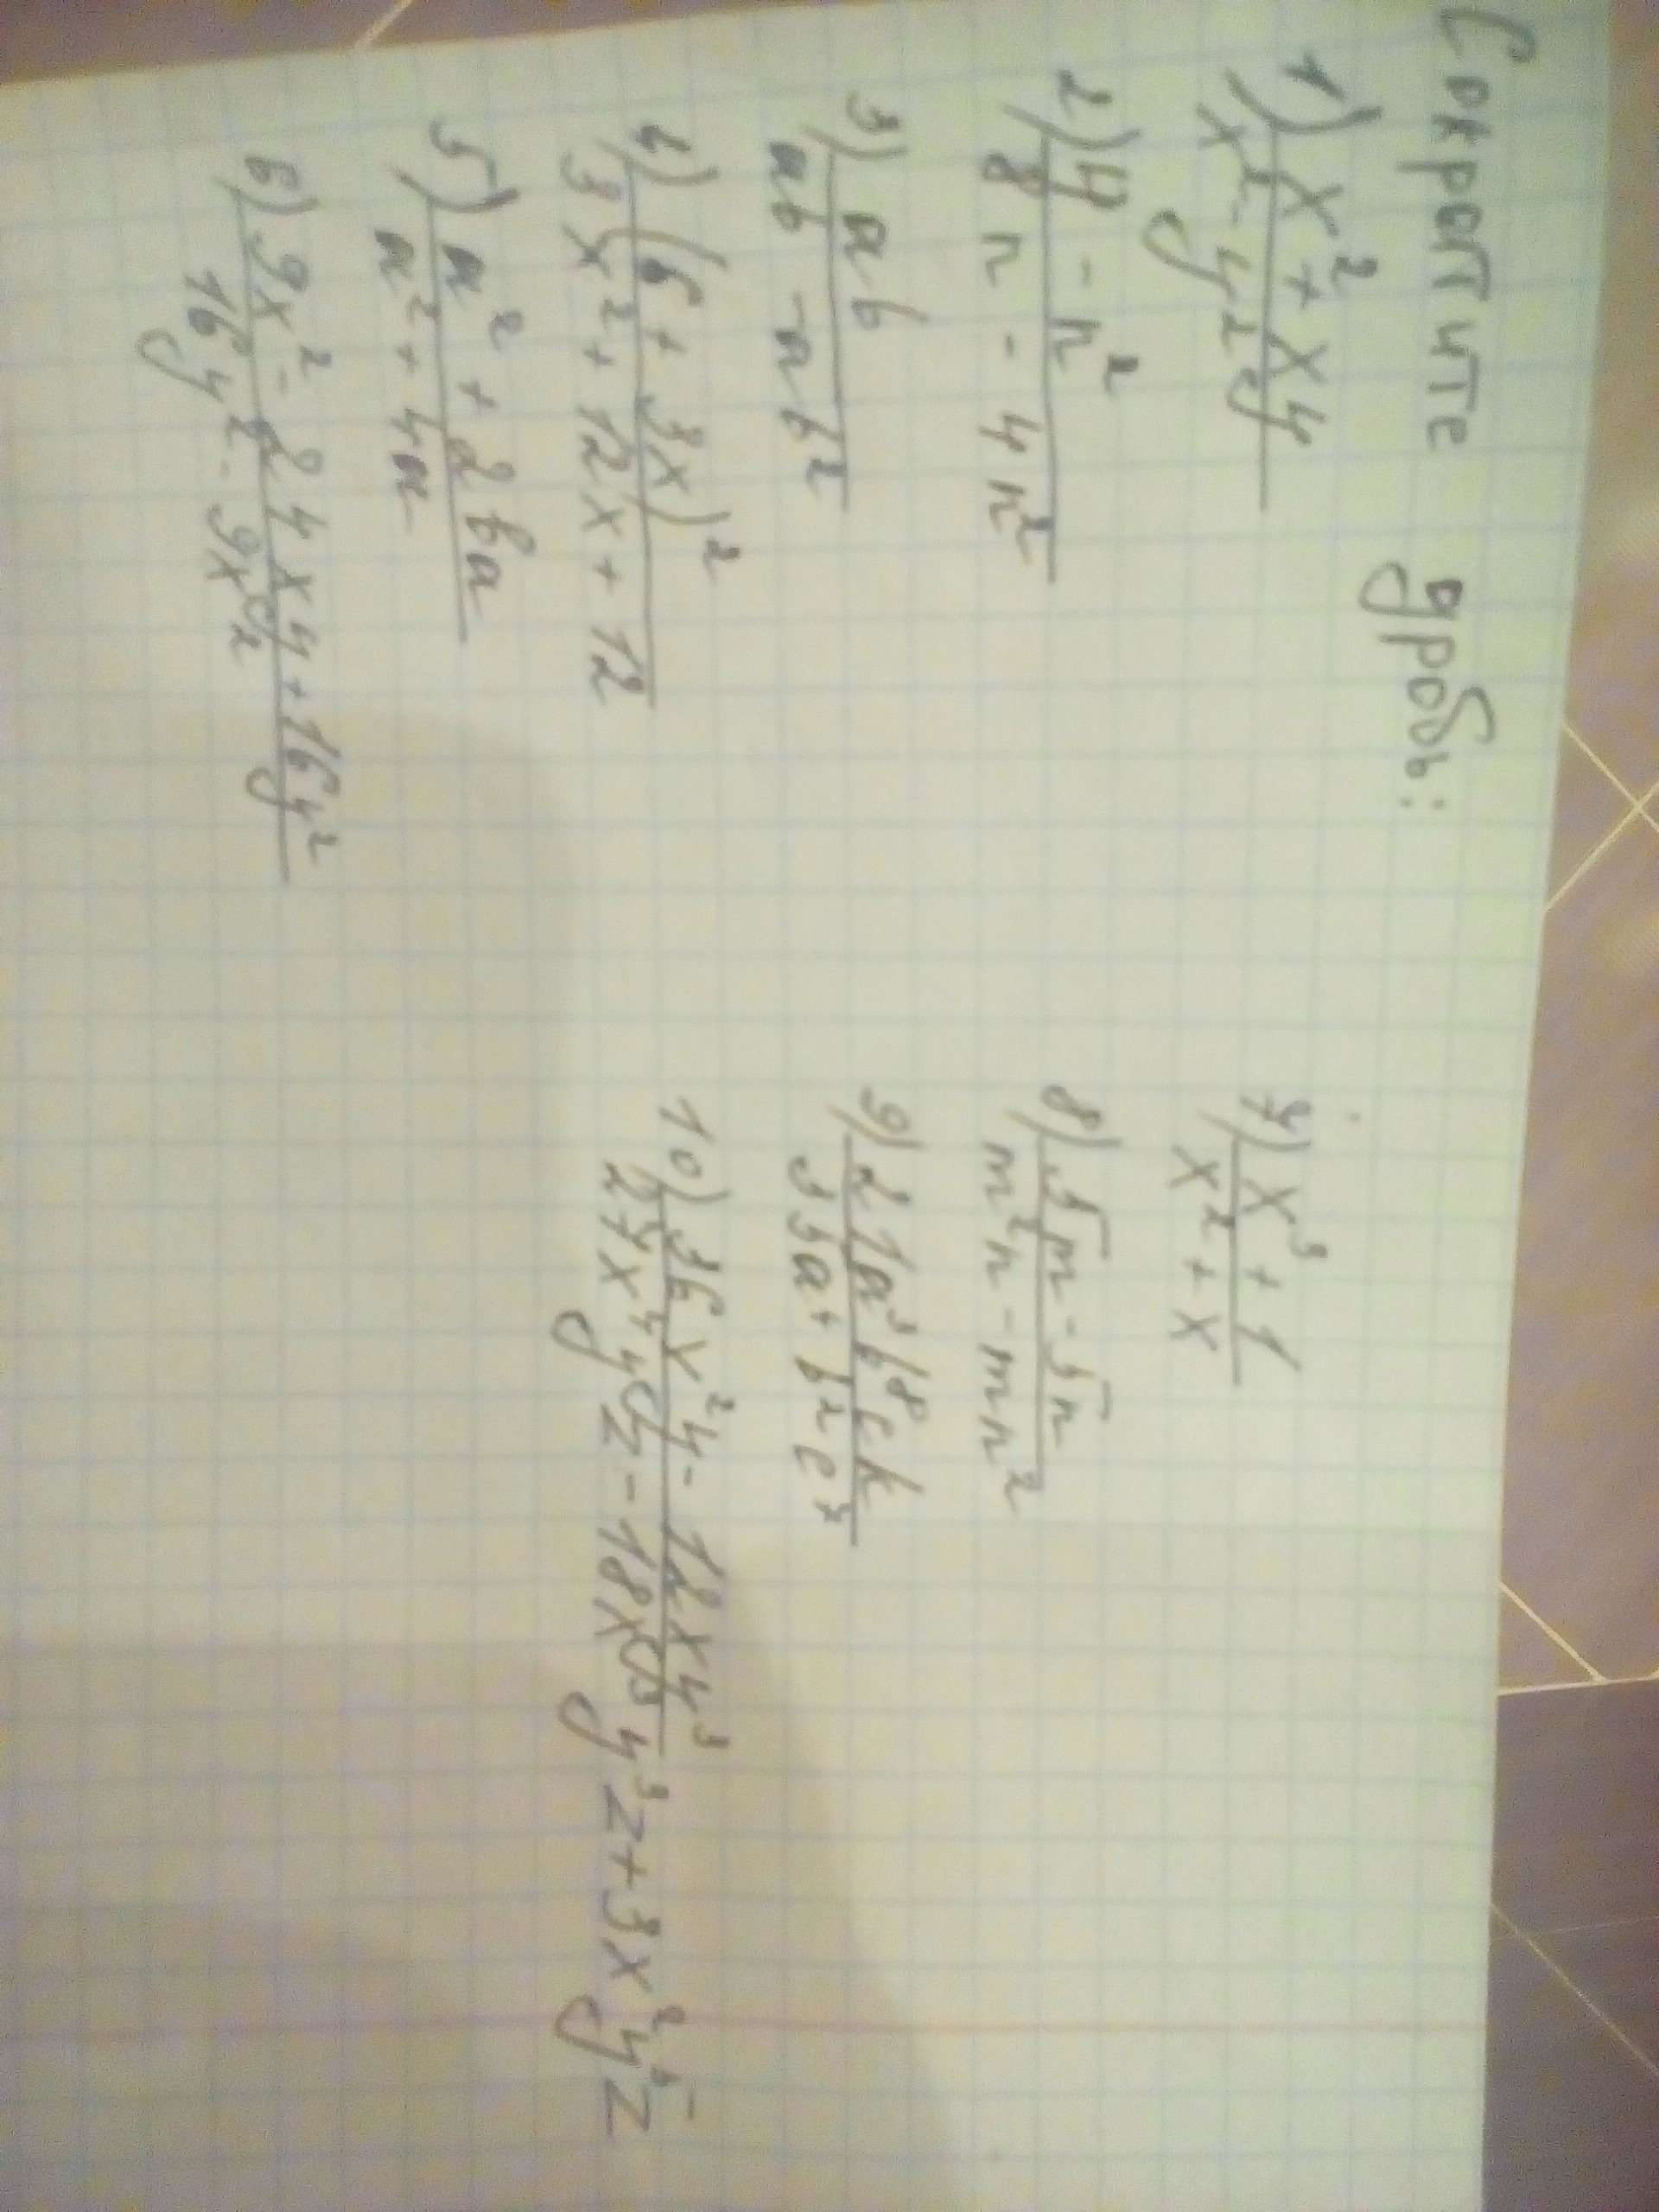 Сократите дробь:
1) (x² + xy)/(x² - y²)
2) (4 - n²)/(8n - 4n²)
3) ab/(ab - ab²)
4) (6 + 3x)²/(3x² + 12x + 12)
5) (a² + 2ba)/(a² + 4a)
6) (9x² - 24xy + 16y²)/(16y² - 9x²)
7) (x³ + 1)/(x² + x)
8) (5m - 5n)/(m²n - mn²)
9) 21a³b⁸ck/(35a⁴b²c⁷)
10) (36x²y - 12xy³)/(27x⁴yz - 18x³y³z + 3x²y⁵z)